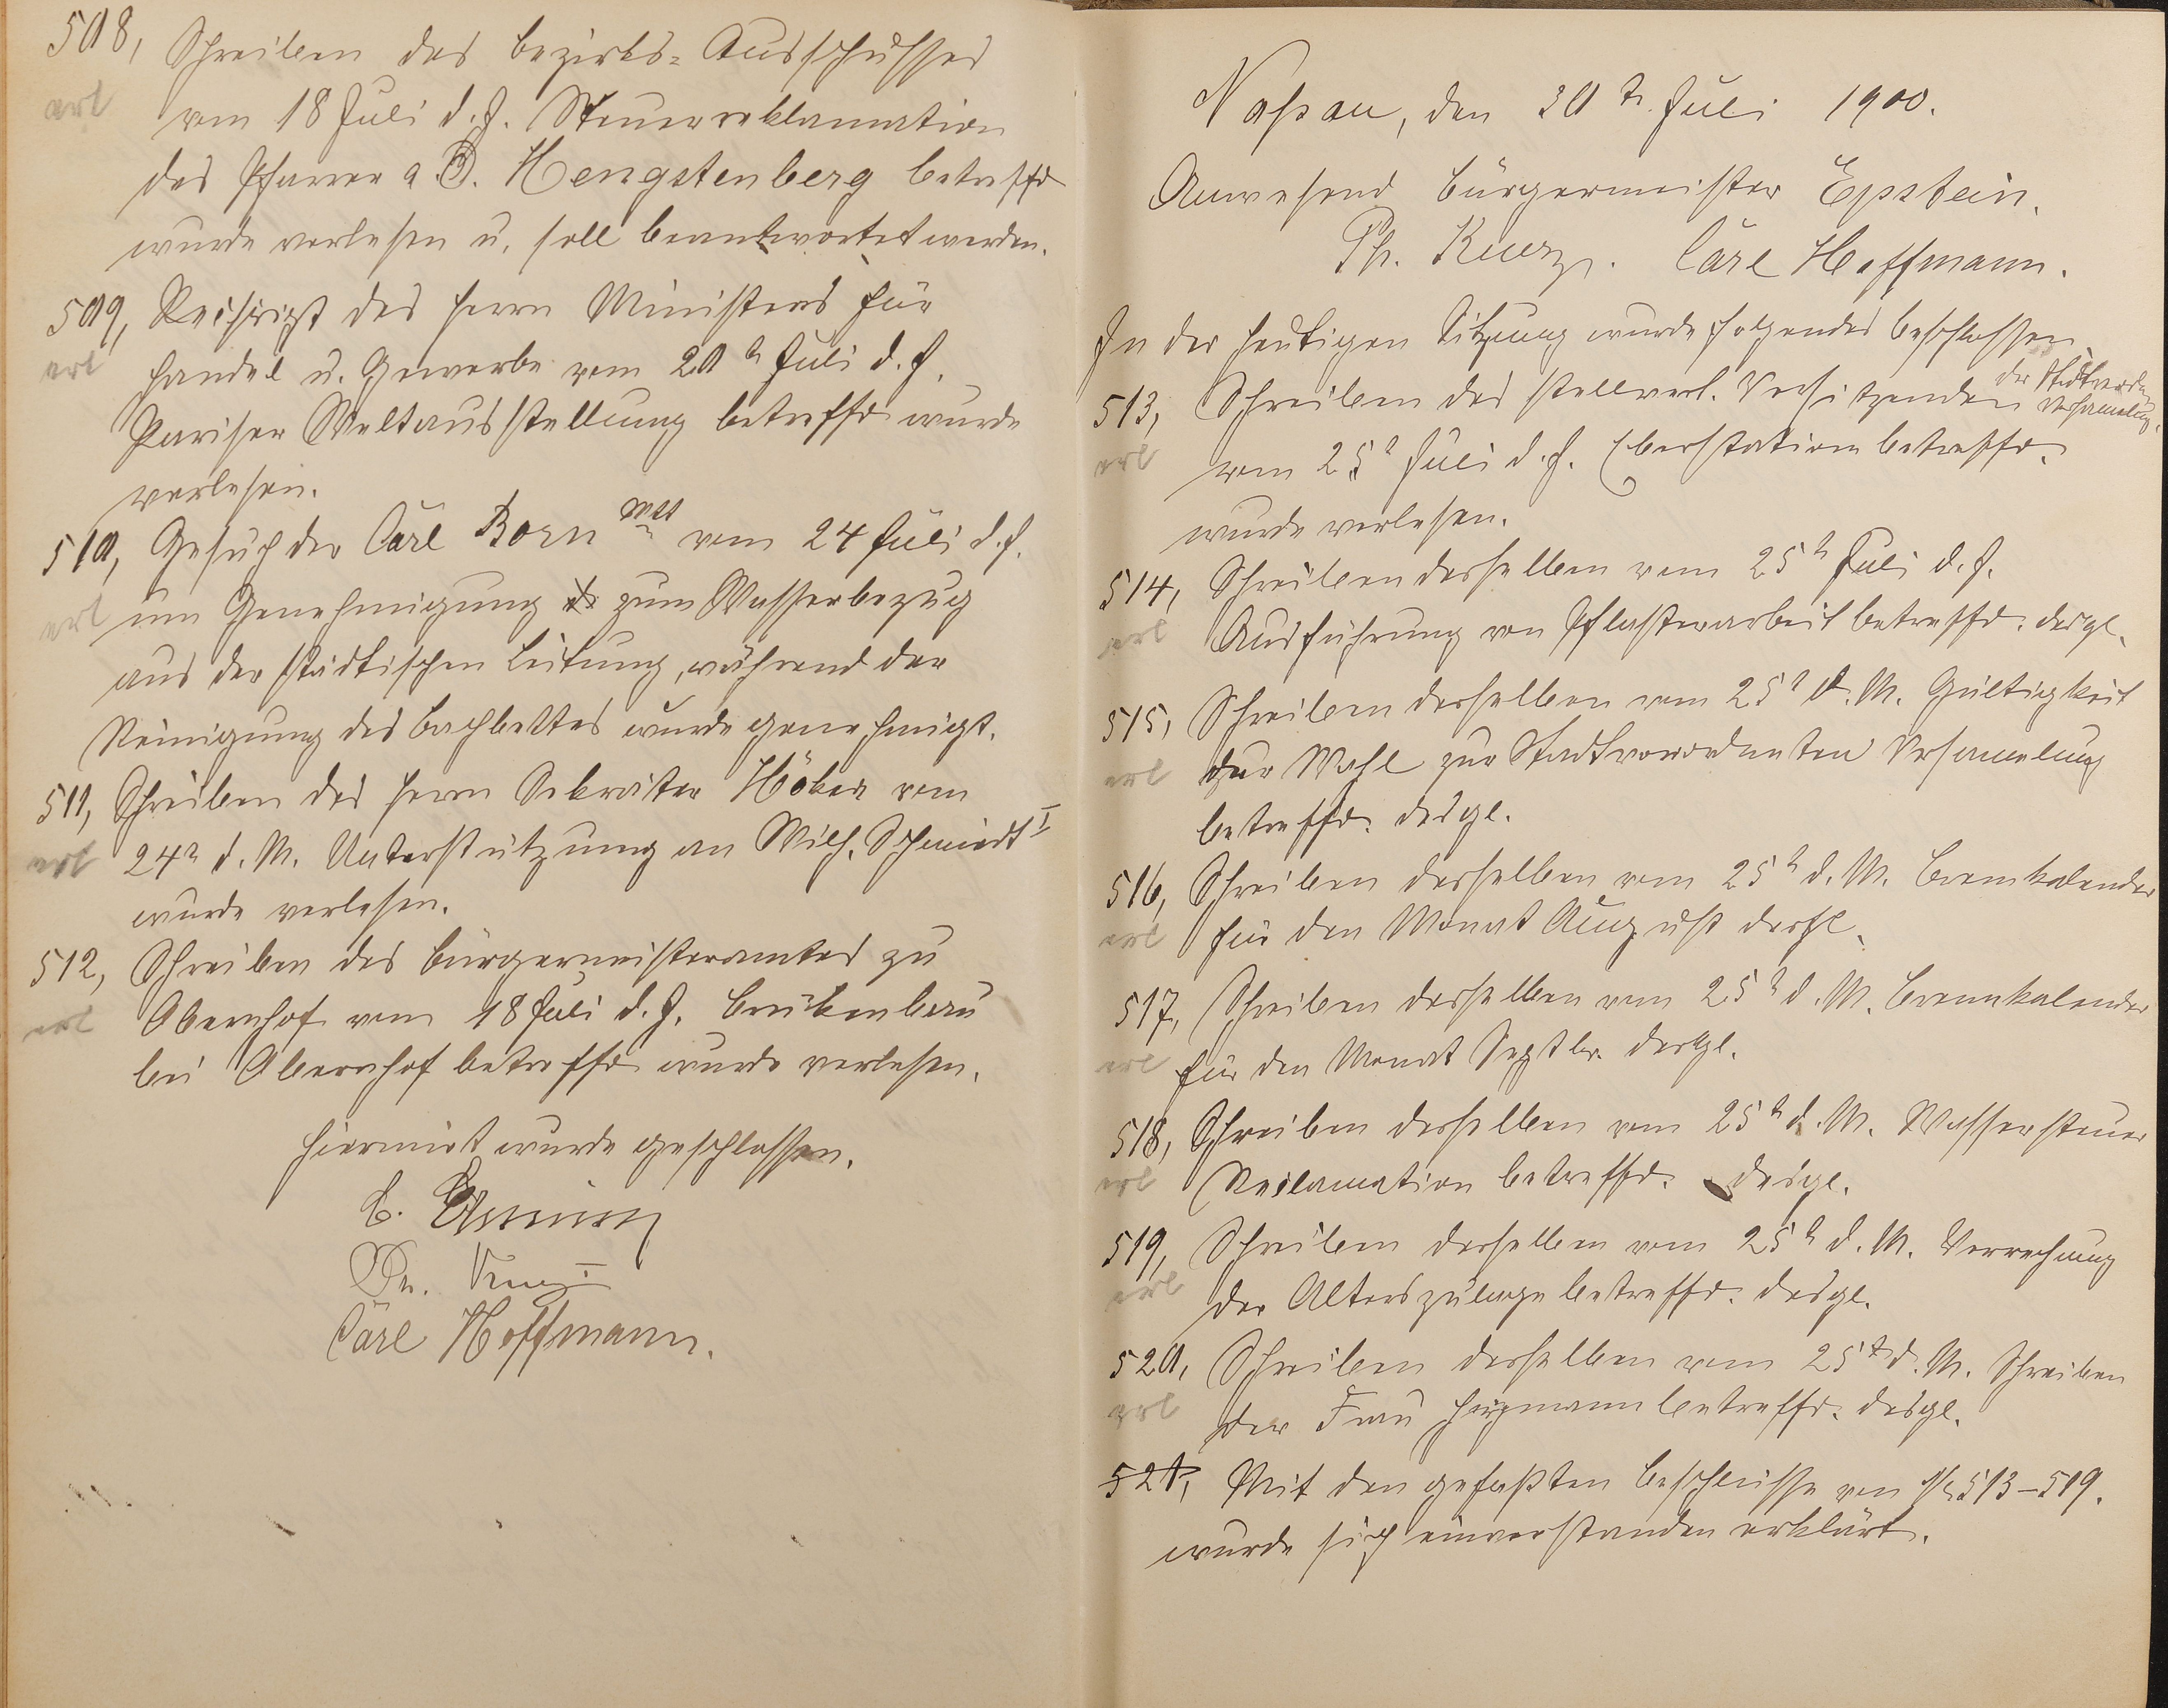 508, Schreiben des Bezirks-Ausschusses
erl vom 18 Juli d. J. Steuerreklamation
des Pfarrer a. D. Hengstenberg betreffd
wurde verlesen u. soll beantwortet werden.
509, Reskript des Herrn Ministers für
erl Handel u. Gewerbe vom 20t Juli d. J.
Pariser Weltausstellung betreffd wurde
verlesen.
510, Gesuch der Carl Born Wtt vom 24 Juli d. J.
erl um Genehmigung zum Wasserbezug
aus der städtischen Leitung, während der
Reinigung des Bachbettes wurde genehmigt.
511, Schreiben des Herrn Sekretär Höber vom
erl 24t d. M. Unterstützung an Wilh. Schmidt I
wurde verlesen.
512, Schreiben des Bürgermeisteramtes zu
erl Obernhof vom 18 Juli d. J. Brückenbau
bei Obernhof betreffd wurde verlesen.
Hiermit wurde geschlossen.
Ph. Kurz
Carl Hoffmann.
Naßau, den 30t Juli 1900.
Anwesend Bürgermeister Epstein.
Ph. Kurz. Carl Hoffmann.
In der heutigen Sitzung wurde folgendes beschlossen
513, Schreiben des stellvert. Vorsitzenden der Stadtverordn Versamlung.
erl vom 25t Juli d. J. betreffd.
wurde verlesen.
514, Schreiben desselben vom 25t Juli d. J.
erl Ausführung von Pflasterarbeit betreffd. desgl.
515, Schreiben desselben vom 25t d. M. Gültigkeit
erl der Wahl zur Stadtverordneten Versamelung
betreffd. desgl.
516, Schreiben desselben vom 25t d. M. Brennkalender
erl für den Monat August desgl.
517, Schreiben desselben vom 25t d. M. Brennkalender
erl für den Monat Septbr. desgl.
518, Schreiben desselben vom 25t d. M. Wassersteuer
erl Reclamation betreffd. desgl.
519, Schreiben desselben vom 25t d. M. Verrechnung
erl der Alterszulage betreffd. desgl.
520, Schreiben desselben vom 25t d. M. Schreiben
erl der Frau betreffd. desgl.
521, Mit den gefaßten Beschlüsse von № 513–519.
wurde sich einverstanden erklärt.